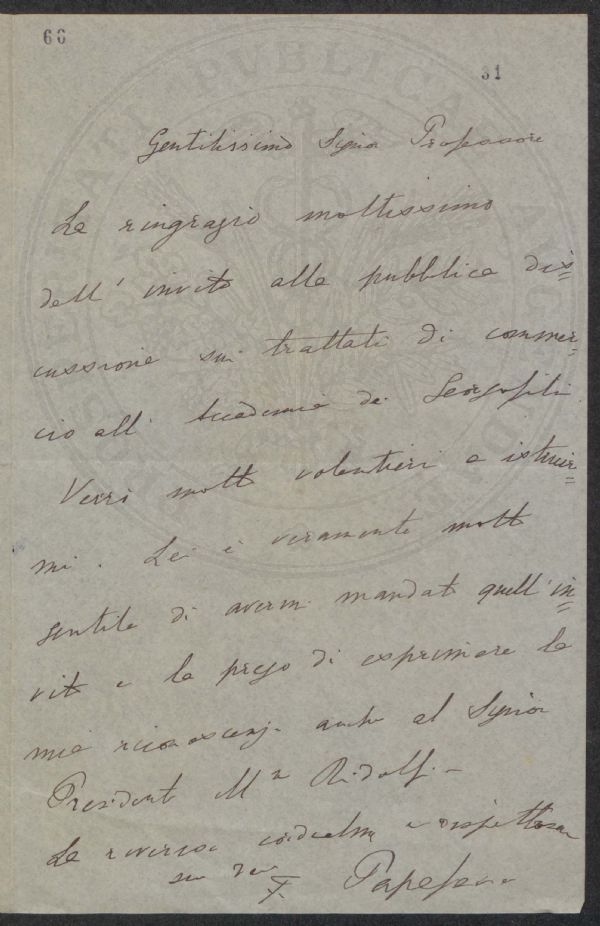 66
31
Gentilissimo Signor Professore
La ringrazio moltissimo
dell' invito alla pubblica dis=
cussione sui trattati di commer=
cio all' Accademia dei Georgofili
Verrò molto volentieri a istruir=
mi. Lei è veramente molto
gentile di avermi mandato quell' in=
vito e la prego di esprimere la
mia riconoscenza anche al Signor
Presidente Mse Ridolfi.
La riverisco cordialm e rispettosam
suo dev
F.